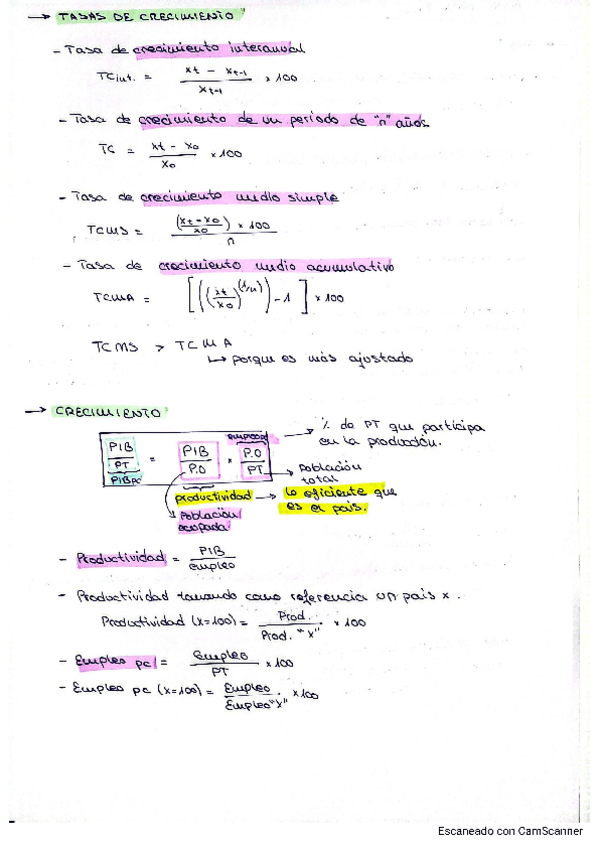 → TASAS DE CRECIMIENTO
- Tasa de crecimiento interanual
TCint. = xt - xt-1 / xt-1 × 100
- Tasa de crecimiento de un período de "n" años.
TC = xt - x0 / x0 × 100
- Tasa de crecimiento medio simple
TCMS = (xt-x0 / x0) × 100 / n
- Tasa de crecimiento medio acumulativo
TCMA = [((xt/x0)^(1/n)) - 1] × 100
TCMS > TCMA
↳ porque es más ajustado
→ CRECIMIENTO
PIB / PT = PIB / P.O × P.O / PT
PIBpc
empleo pc
→ % de PT que participa
en la producción.
→ población
total
productividad → lo eficiente que
es el país.
Población
ocupada
- Productividad = PIB / empleo
- Productividad tomando como referencia un país x.
Productividad (x=100) = Prod. / Prod. "x" × 100
- Empleo pc = Empleo / PT × 100
- Empleo pc (x=100) = Empleo / Empleo "x" × 100
Escaneado con CamScanner